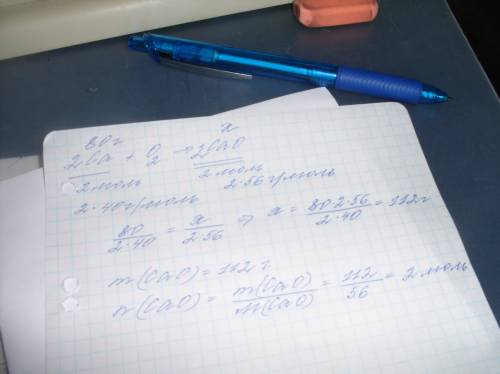 80г x
2Ca + O₂ → 2CaO
2 моль 2 моль
2·40 г/моль 2·56 г/моль
80/2·40 = x/2·56 ⇒ x = 80·2·56/2·40 = 112 г
m(CaO) = 112 г
n(CaO) = m(CaO)/M(CaO) = 112/56 = 2 моль